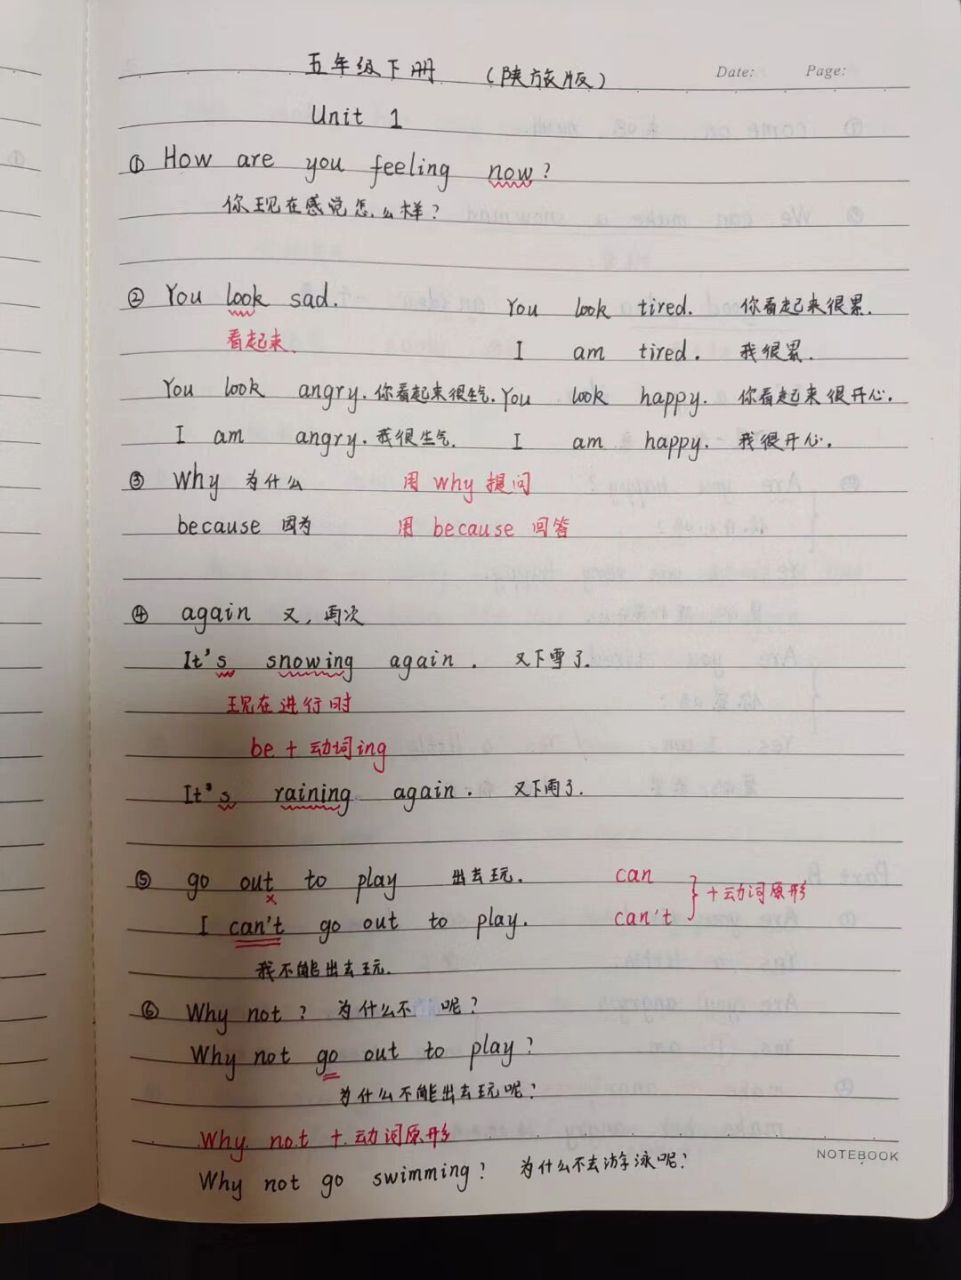 五年级下册 （陕旅版）
Date: Page:
Unit 1
① How are you feeling now?
你现在感觉怎么样?
② You look sad. You look tired. 你看起来很累.
看起来. I am tired. 我很累.
You look angry. 你看起来很生气. You look happy. 你看起来很开心.
I am angry. 我很生气. I am happy. 我很开心.
③ Why 为什么 用 why 提问
because 因为 用 because 回答
④ again 又, 再次
It's snowing again. 又下雪了.
现在进行时
be + 动词ing
It's raining again. 又下雨了.
⑤ go out to play 出去玩. can
+ 动词原形
I can't go out to play. can't
我不能出去玩.
⑥ Why not? 为什么不呢?
Why not go out to play?
为什么不能出去玩呢?
Why not + 动词原形
NOTEBOOK
Why not go swimming? 为什么不去游泳呢?